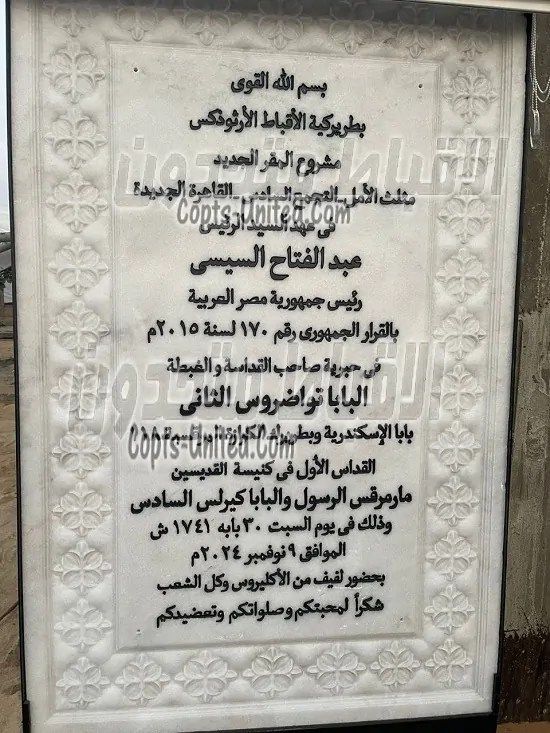 بسم الله القوى
بطريركية الأقباط الأرثوذكس
مشروع المقر الجديد
مثلث الأمل_التجمع السادس_القاهرة الجديدة
فى عهد السيد الرئيس
عبد الفتاح السيسى
رئيس جمهورية مصر العربية
بالقرار الجمهورى رقم ١٧٠ لسنة ٢٠١٥م
فى حبرية صاحب القداسة والغبطة
البابا تواضروس الثانى
بابا الإسكندرية وبطريرك الكرازة المرقسية ١١٨
القداس الأول فى كنيسة القديسين
مارمرقس الرسول والبابا كيرلس السادس
وذلك فى يوم السبت ٣٠ بابه ١٧٤١ ش
الموافق ٩ نوفمبر ٢٠٢٤م
بحضور لفيف من الأكليروس وكل الشعب
شكراً لمحبتكم وصلواتكم وتعضيدكم
الاقباط متحدون
Copts-United.Com
الاقباط متحدون
Copts-United.Com